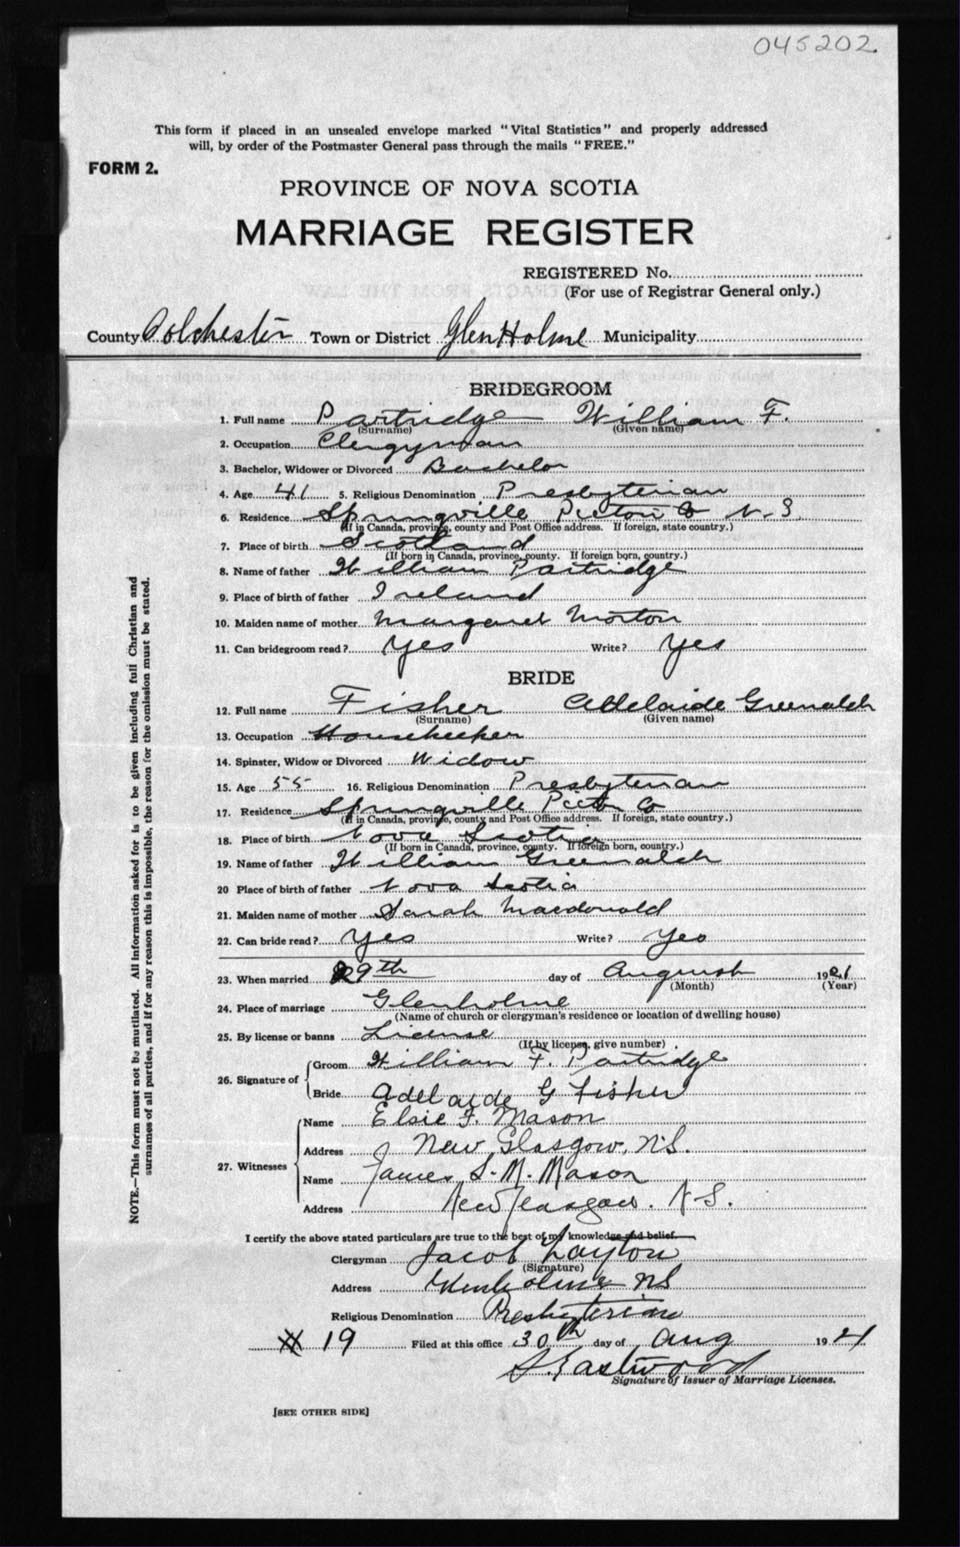 045202.
This form if placed in an unsealed envelope marked "Vital Statistics" and properly addressed
will, by order of the Postmaster General pass through the mails "FREE."
FORM 2.
PROVINCE OF NOVA SCOTIA
MARRIAGE REGISTER
REGISTERED No.
(For use of Registrar General only.)
County Colchester Town or District Glen Holme Municipality
BRIDEGROOM
1. Full name Partridge William F.
(Surname) (Given name)
2. Occupation Clergyman
3. Bachelor, Widower or Divorced Bachelor
4. Age 41 5. Religious Denomination Presbyterian
6. Residence Springville Pictou Co N.S
(If in Canada, province, county and Post Office address. If foreign, state country.)
7. Place of birth Scotland
(If born in Canada, province, county. If foreign born, country.)
8. Name of father William Partridge
9. Place of birth of father Ireland
10. Maiden name of mother Margaret Morton
11. Can bridegroom read? Yes Write? Yes
BRIDE
12. Full name Fisher Adelaide Greenalch
(Surname) (Given name)
13. Occupation Housekeeper
14. Spinster, Widow or Divorced Widow
15. Age 55 16. Religious Denomination Presbyterian
17. Residence Springville Pictou Co
(If in Canada, province, county and Post Office address. If foreign, state country.)
18. Place of birth Nova Scotia
(If born in Canada, province, county. If foreign born, country.)
19. Name of father William Greenalch
20 Place of birth of father Nova Scotia
21. Maiden name of mother Sarah Macdonald
22. Can bride read? Yes Write? Yes
23. When married 29th day of August 1921
(Month) (Year)
24. Place of marriage Glenholme
(Name of church or clergyman's residence or location of dwelling house)
25. By license or banns License
(If by license, give number)
26. Signature of Groom William F. Partridge
Bride Adelaide G Fisher
27. Witnesses Name Elsie F. Mason
Address New Glasgow, N.S.
Name James S. M. Mason
Address New Glasgow. N.S.
I certify the above stated particulars are true to the best of my knowledge and belief.
Clergyman Jacob Layton
(Signature)
Address Glenholme NS
Religious Denomination Presbyterian
19 Filed at this office 30th day of Aug 1921
S. Eastwood
Signature of Issuer of Marriage Licenses.
[SEE OTHER SIDE]
NOTE.—This form must not be mutilated. All information asked for is to be given including full Christian and
surnames of all parties, and if for any reason this is impossible, the reason for the omission must be stated.